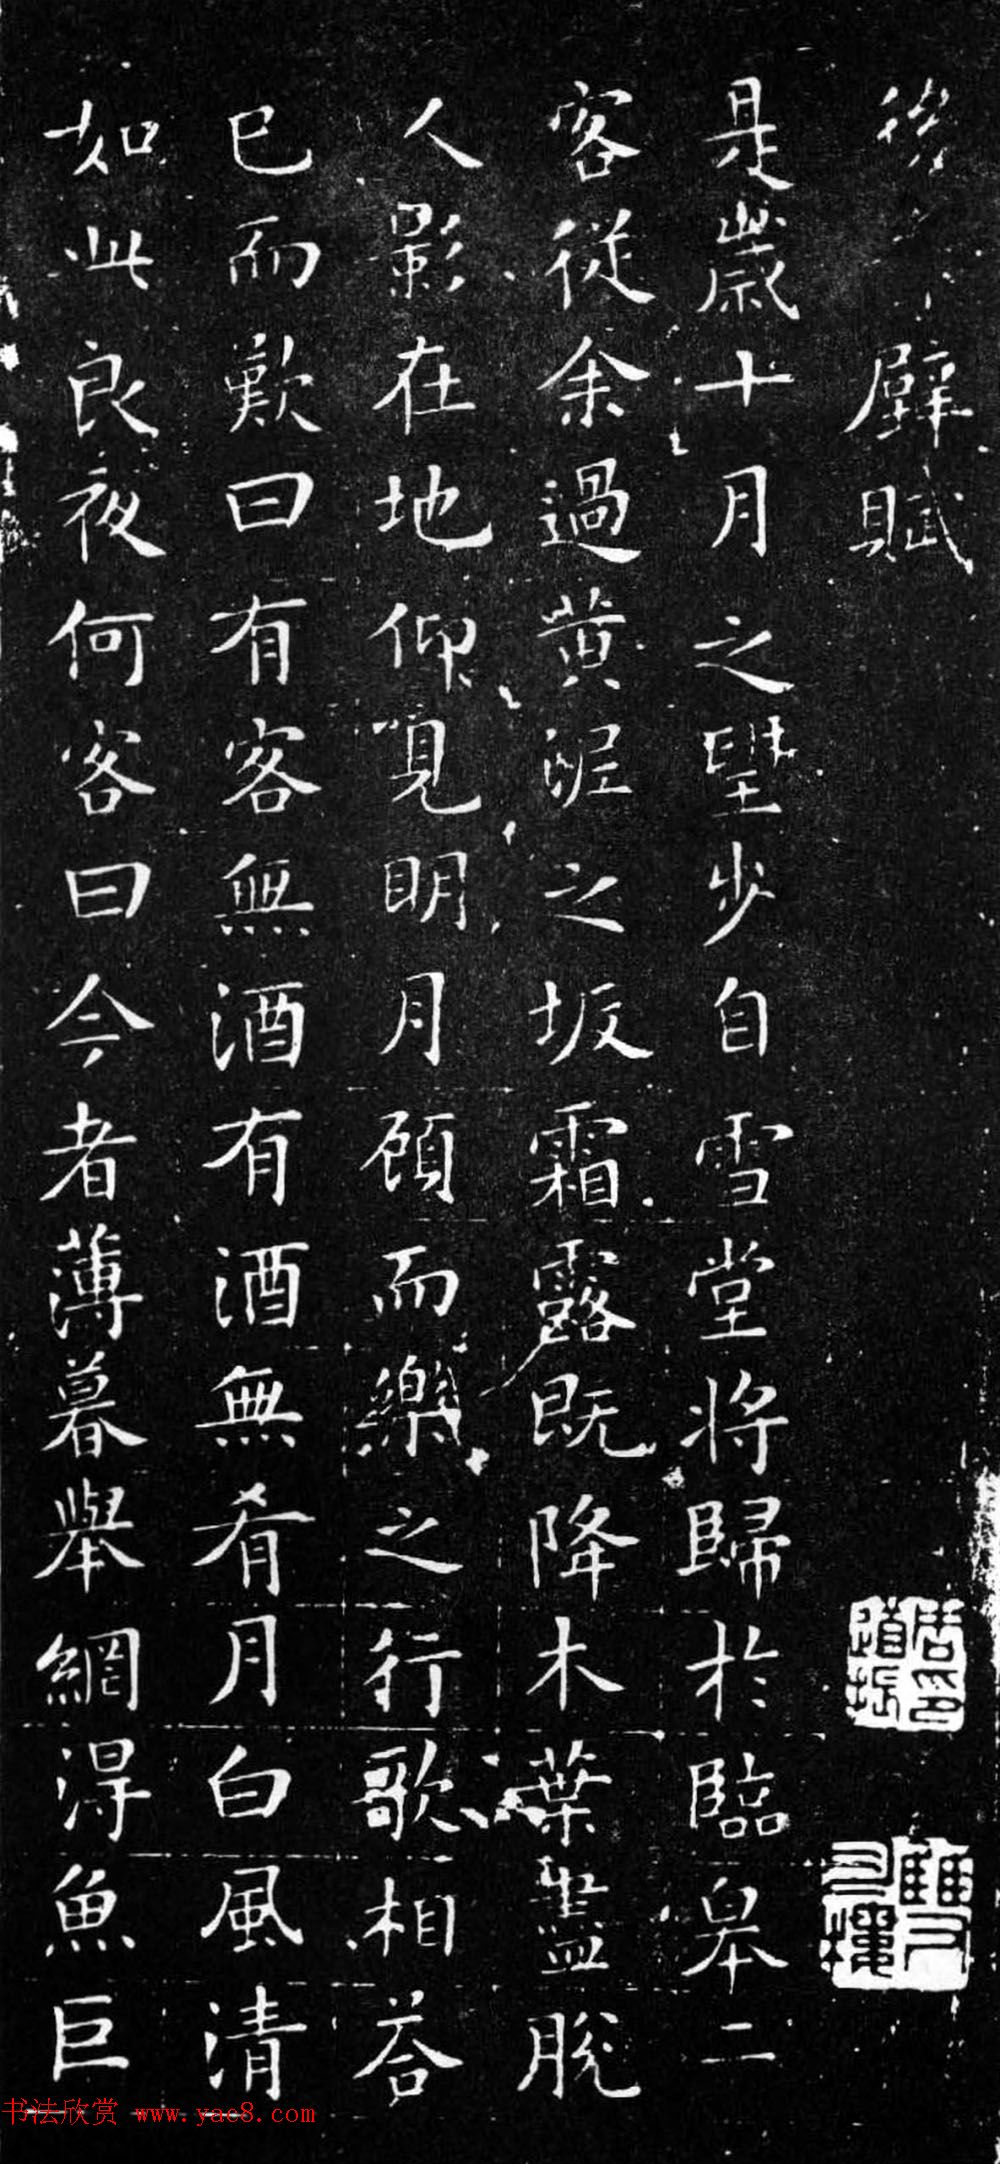 後壁賦
是歲十月之望步自雪堂將歸於臨皋二
客從余過黃泥之坂霜露既降木葉盡脫
人影在地仰見明月顧而樂之行歌相荅
已而歎曰有客無酒有酒無肴月白風清
如此良夜何客曰今者薄暮舉網得魚巨
周印道振
书法欣赏 www.yac8.com